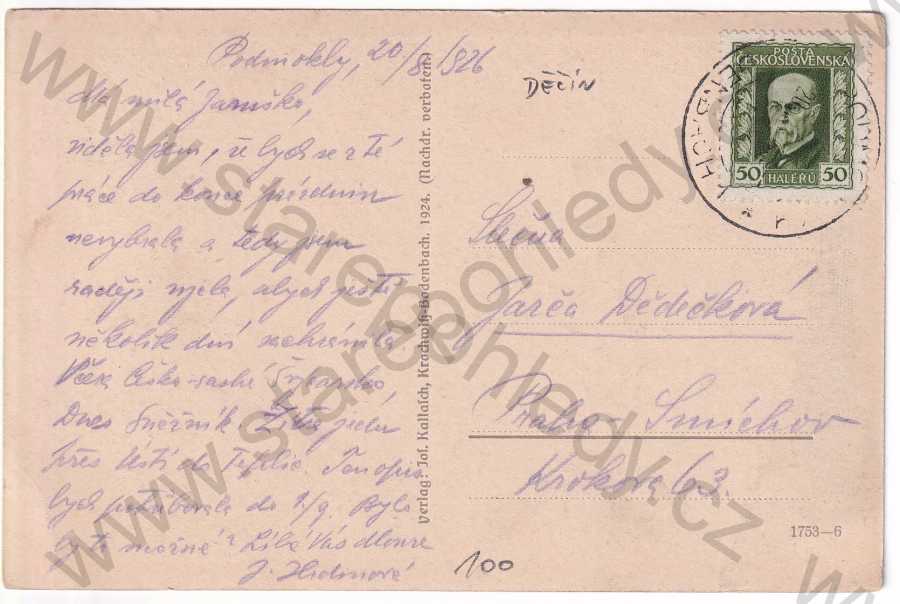 Podmokly, 20/8 1926
Má milá Jaruško,
viděla jsem, že bych se z té
práce do konce prázdnin
nevybrala a tedy jsem
raději ujela, abych ještě
několik dní zachránila.
Včera Česko-saské Švýcarsko
Dnes Sněžník. Zítra jedu
přes Ústí do Teplic. Ten opus
bych potřebovala do 1./9. Bylo
by to možné? Líbá Vás
J.
DĚČÍN
POŠTA
ČESKOSLOVENSKA
50 HALÉŘŮ 50
Slečna
Jarča Dědečková
Praha - Smíchov
Krokova 63.
Verlag: Jos. Kallasch, Krochwitz-Bodenbach. 1924. (Nachdr. verboten.)
1753—6
100
www.starepohledy.cz
www.starepohledy.cz